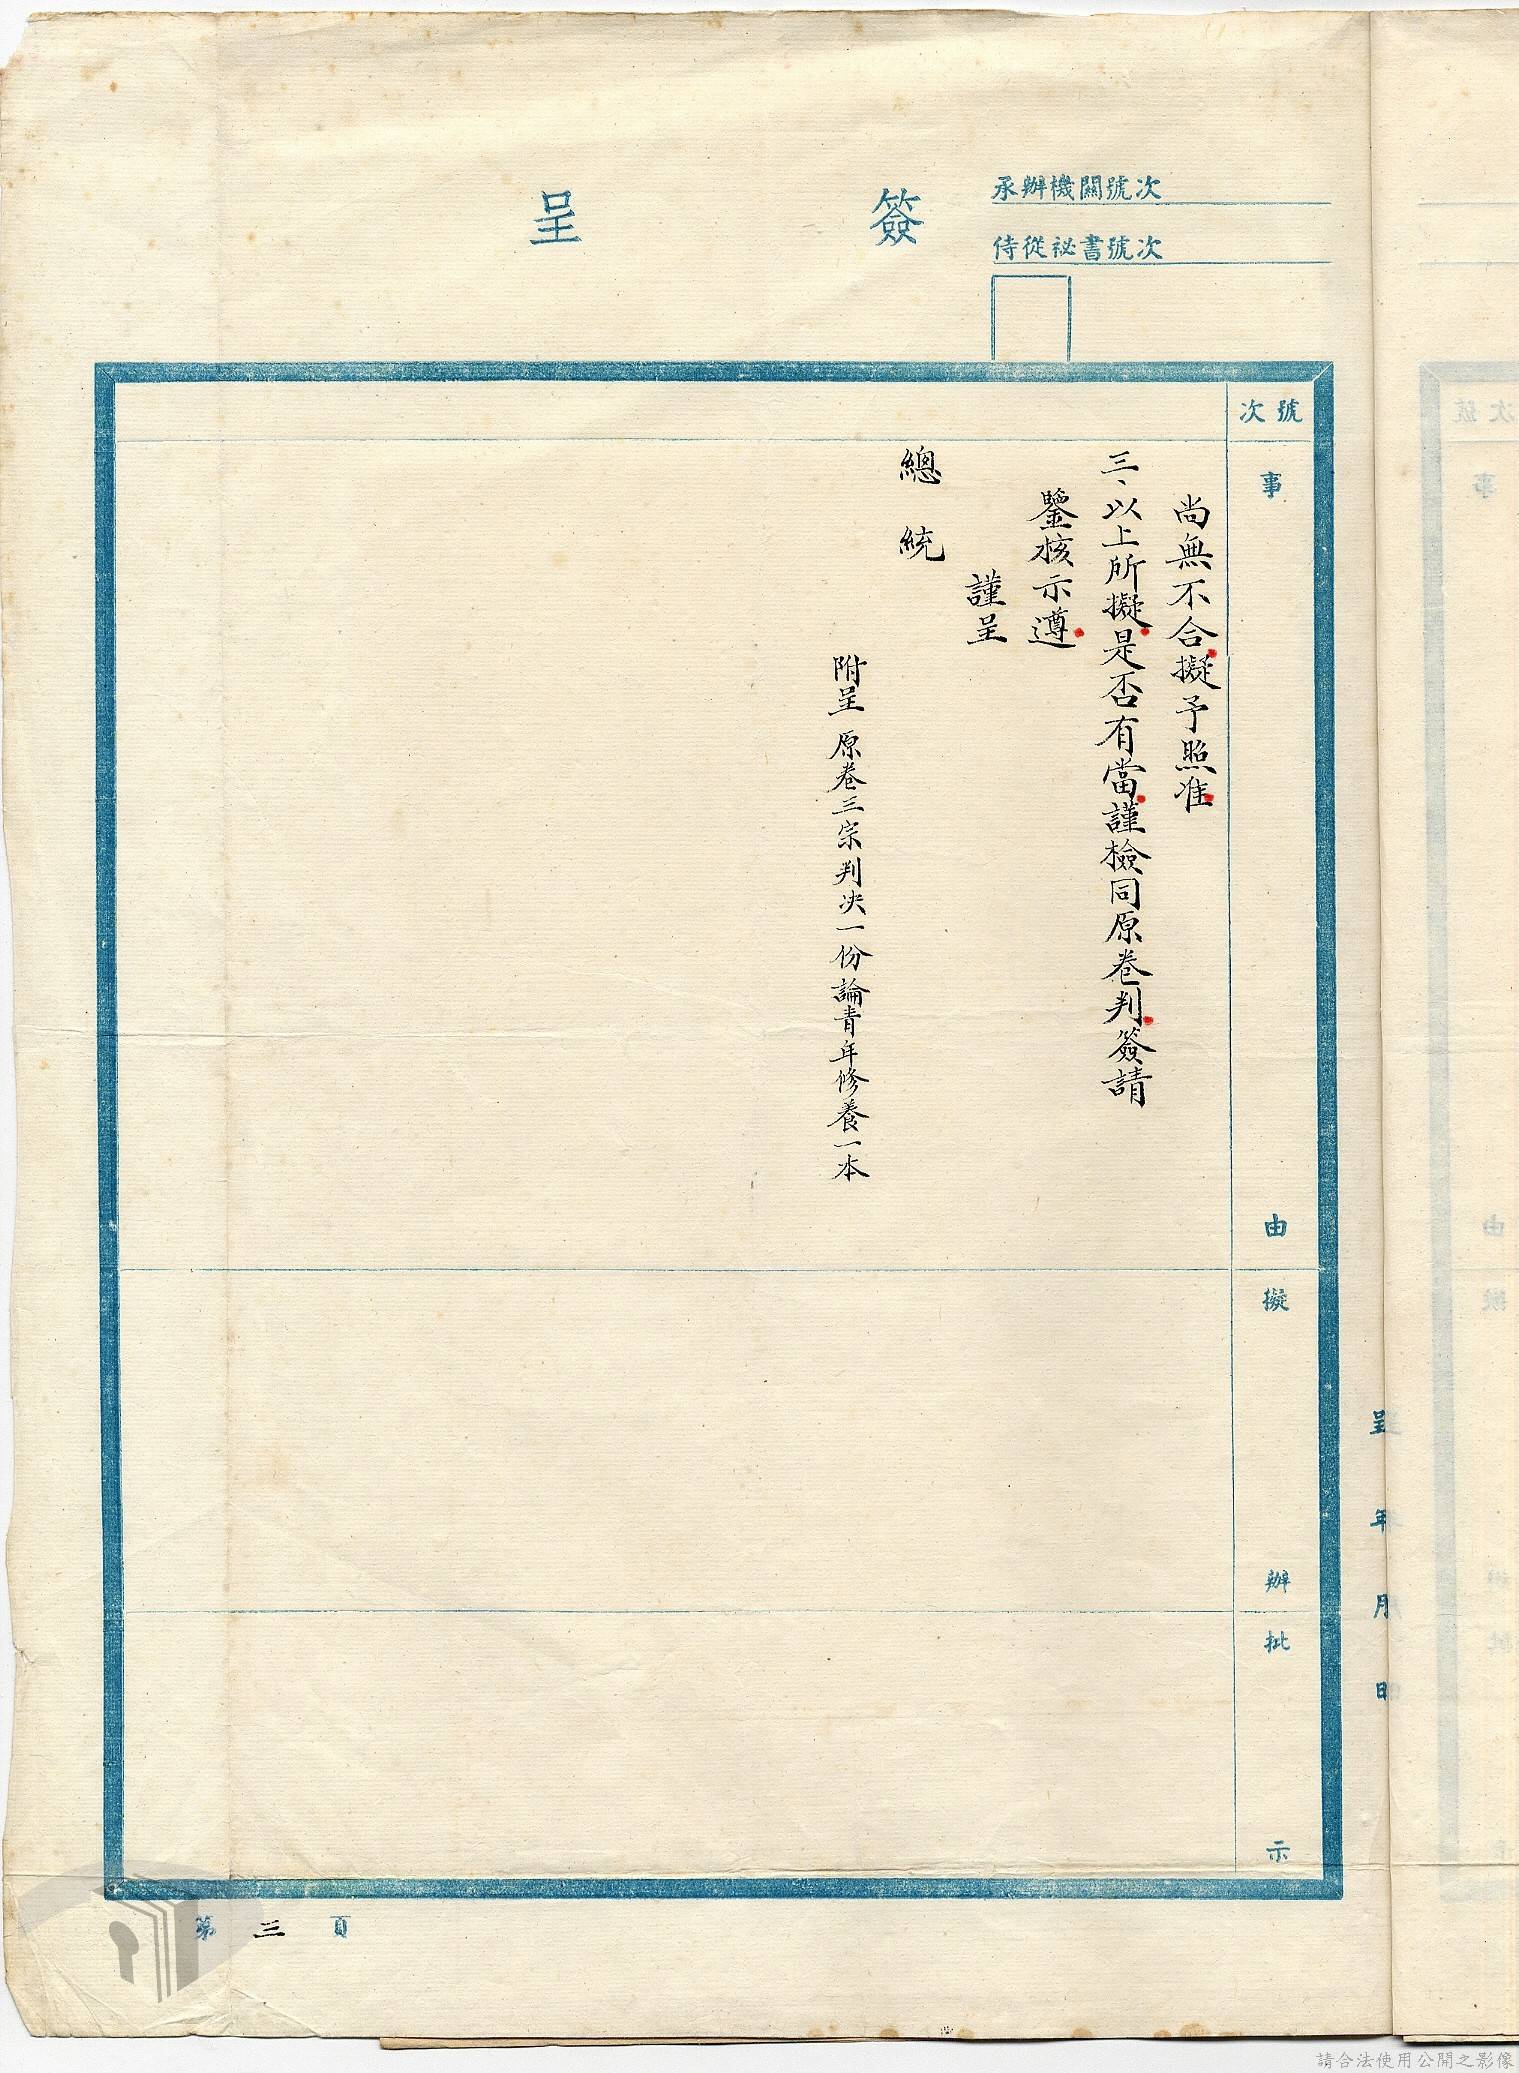 簽呈
承辦機關號次
侍從祕書號次
號次
事由
擬辦
批示
尚無不合擬予照准
三、以上所擬是否有當謹檢同原卷判簽請
鑒核示遵
謹呈
總統
附呈原卷三宗判決一份論青年修養一本
呈 年 月 日
第三頁
請合法使用公開之影像